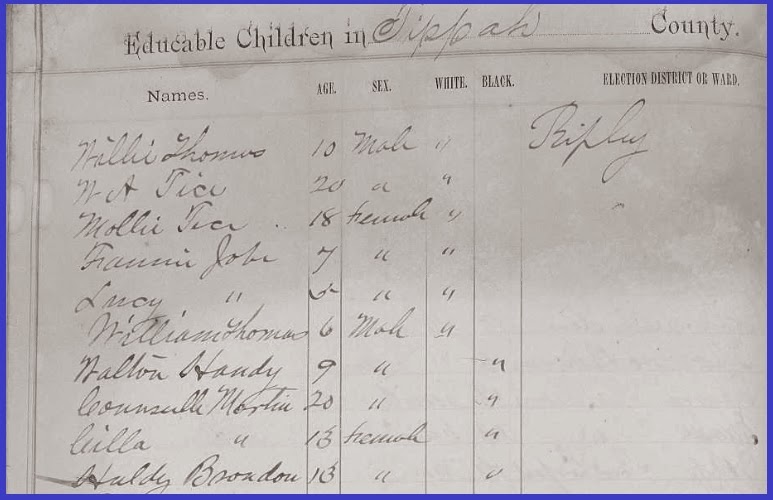 Educable Children in Tippah County.
Names. AGE. SEX. WHITE. BLACK. ELECTION DISTRICT OR WARD.
Willie Thomas 10 Male " Ripley
W A Tice 20 " "
Mollie Tice 18 Female " "
Fannie Jobe 7 " "
Lucy " 5 " "
William Thomas 6 Male "
Walton Handy 9 " "
Martin 20 " "
Cilla " 13 Female "
Huldy Brandon 13 " "